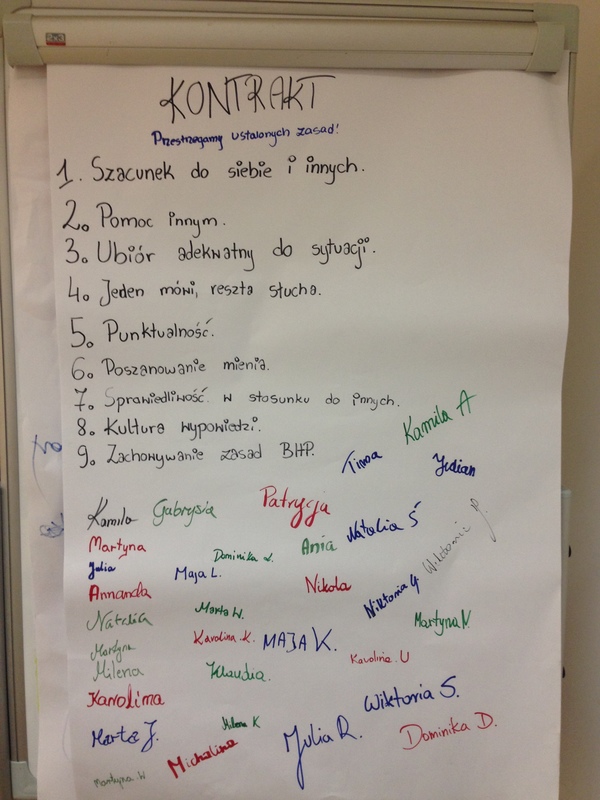 KONTRAKT
Przestrzegamy ustalonych zasad!
1. Szacunek do siebie i innych.
2. Pomoc innym.
3. Ubiór adekwatny do sytuacji.
4. Jeden mówi, reszta słucha.
5. Punktualność.
6. Poszanowanie mienia.
7. Sprawiedliwość w stosunku do innych.
8. Kultura wypowiedzi.
9. Zachowywanie zasad BHP.
Kamila A
Julian
Kamila Gabrysia Patrycja
Natalia Ś
Martyna Dominika Ania
Julia Maja L.
Annanda Nikola
Wiktoria
Natalia Marta W. Martyna N.
Martyna Karolina K. MAJA K.
Milena Klaudia. Karolina U
Karolina Wiktoria S.
Marta J. Milena K Julia R. Dominika D.
Martyna W Michalina